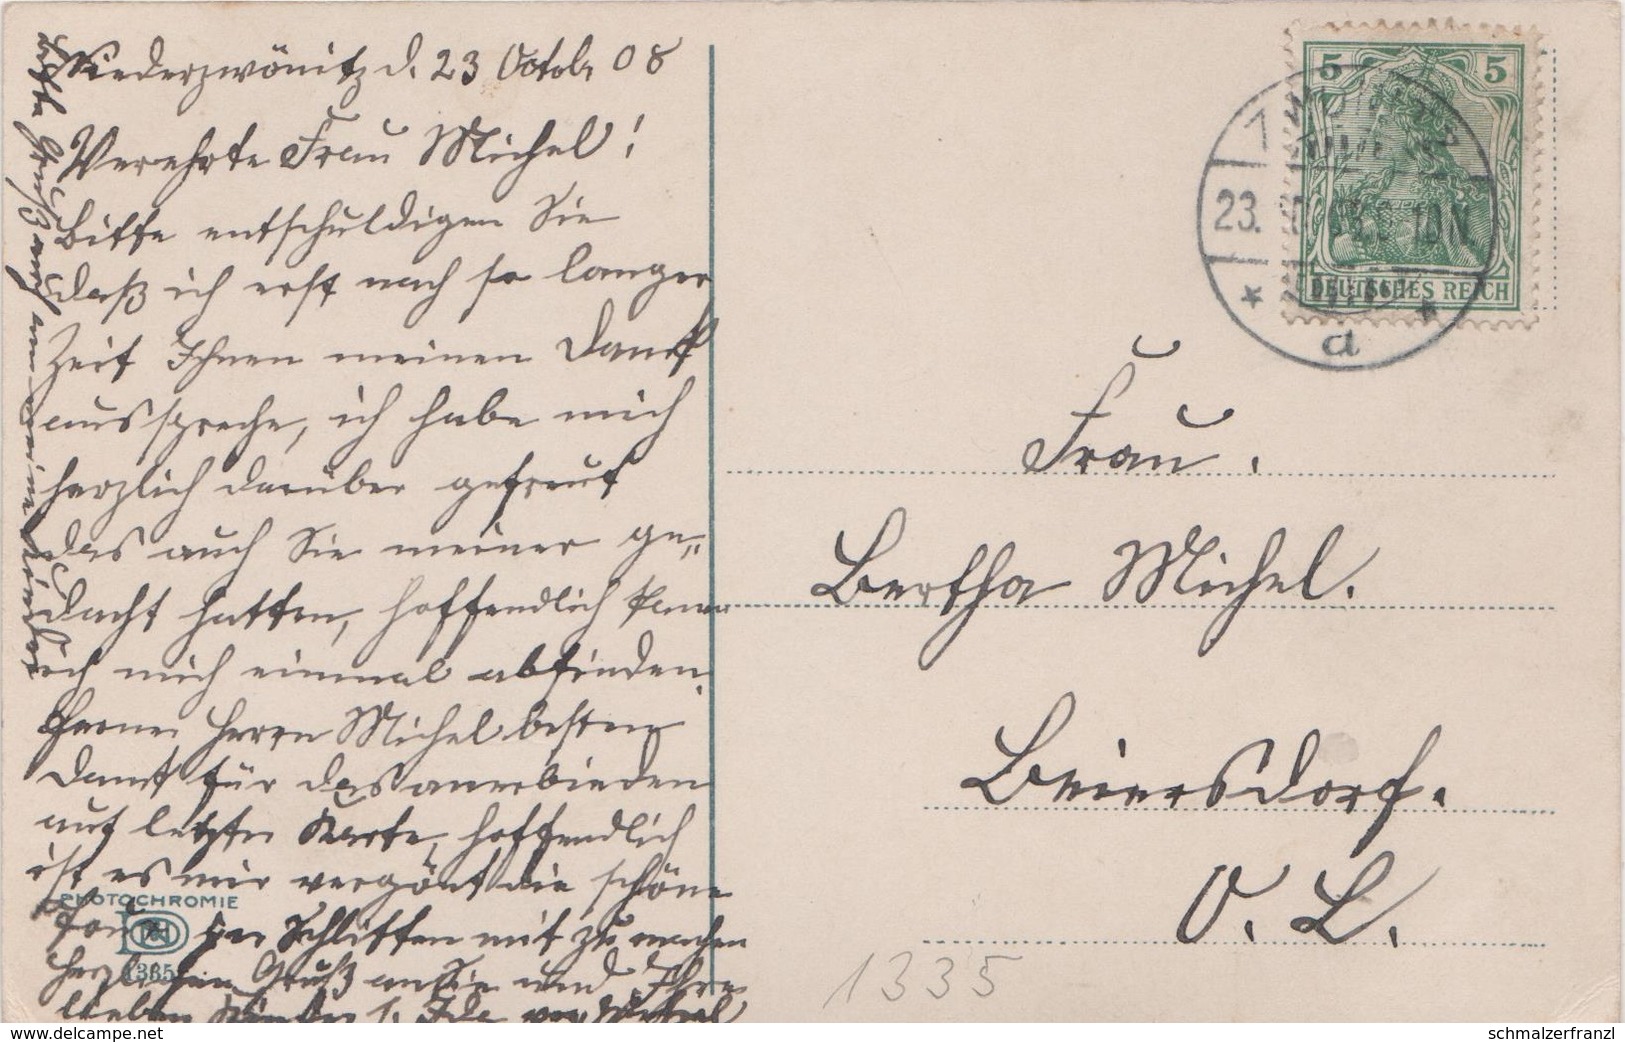 Niederzwönitz d. 23 Octobr 08
Verehrte Frau Michel!
Bitte entschuldigen Sie
daß ich erst nach so langer
Zeit Ihnen meinen Dank
ausspreche, ich habe mich
herzlich darüber gefreut
das auch Sie meiner ge„
dacht hatten, hoffendlich kann
ich mich einmal abfinden.
Ferner Herrn Michel besten
Dank für das anerbieden
auf letzter Karte, hoffendlich
ist es mir vergönt die schöne
Tour per Schlitten mit zu machen
herzlichen Gruß an Sie und Ihre
lieben Kinder
bitte Gruß auch an meine Kinder
PHOTOCHROMIE
1335
5 5
DEUTSCHES REICH
ZWÖNITZ
23. 10N.
* *
a
Frau.
Bertha Michel.
Beiersdorf.
O. L.
1335
www.delcampe.net
schmalzerfranzl